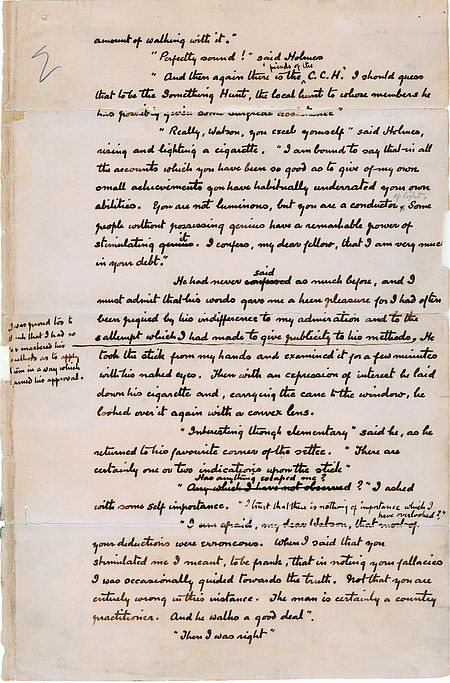 2
amount of walking with it."
"Perfectly sound!" said Holmes
"And then again there is the 'friends of the C.C.H.' I should guess
that to be the Something Hunt, the local hunt to whose members he
has possibly given some surgical assistance"
"Really, Watson, you excel yourself" said Holmes,
rising and lighting a cigarette. "I am bound to say that in all
the accounts which you have been so good as to give of my own
small achievements you have habitually underrated your own
abilities. You are not luminous, but you are a conductor of light. Some
people without possessing genius have a remarkable power of
stimulating genius it. I confess, my dear fellow, that I am very much
in your debt."
He had never confessed said as much before, and I
must admit that his words gave me a keen pleasure for I had often
been piqued by his indifference to my admiration and to the
attempt which I had made to give publicity to his methods. He
I was proud too to
think that I had so
far mastered his
methods as to apply
them in a way which
earned his approval.
took the stick from my hands and examined it for a few minutes
with his naked eyes. Then with an expression of interest he laid
down his cigarette and, carrying the cane to the window, he
looked over it again with a convex lens.
"Interesting though elementary" said he, as he
returned to his favourite corner of the settee. "There are
certainly one or two indications upon the stick"
Has anything escaped me?
"Any which I have not observed?" I asked
with some self importance. "I trust that there is nothing of importance which I
have overlooked?"
"I am afraid, my dear Watson, that most of
your deductions were erroneous. When I said that you
stimulated me I meant, to be frank, that in noting your fallacies
I was occasionally guided towards the truth. Not that you are
entirely wrong in this instance. The man is certainly a country
practitioner. And he walks a good deal".
"Then I was right"